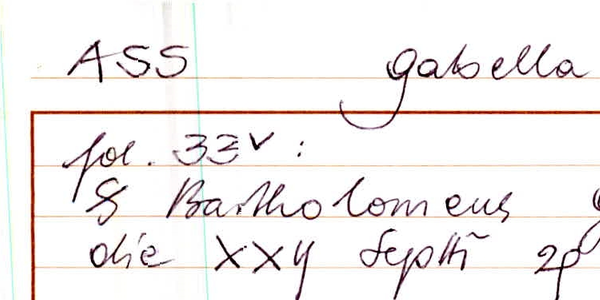 ASS gabella
fol. 33v :
S Bartholomeus
die XXIJ Septtī